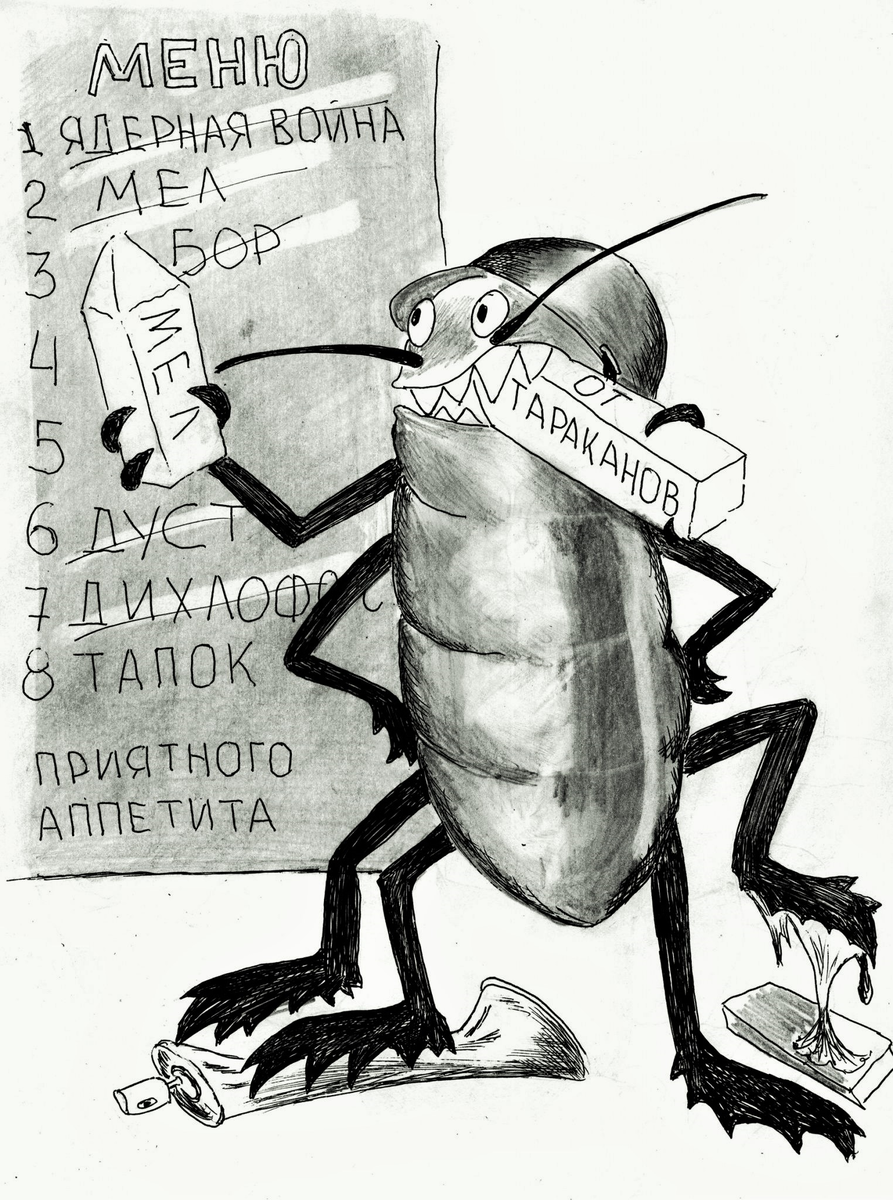 МЕНЮ
1 ЯДЕРНАЯ ВОЙНА
2 МЕЛ
3 БОР
4
5
6 ДУСТ
7 ДИХЛОФОС
8 ТАПОК
ПРИЯТНОГО
АППЕТИТА
МЕЛ
ОТ
ТАРАКАНОВ